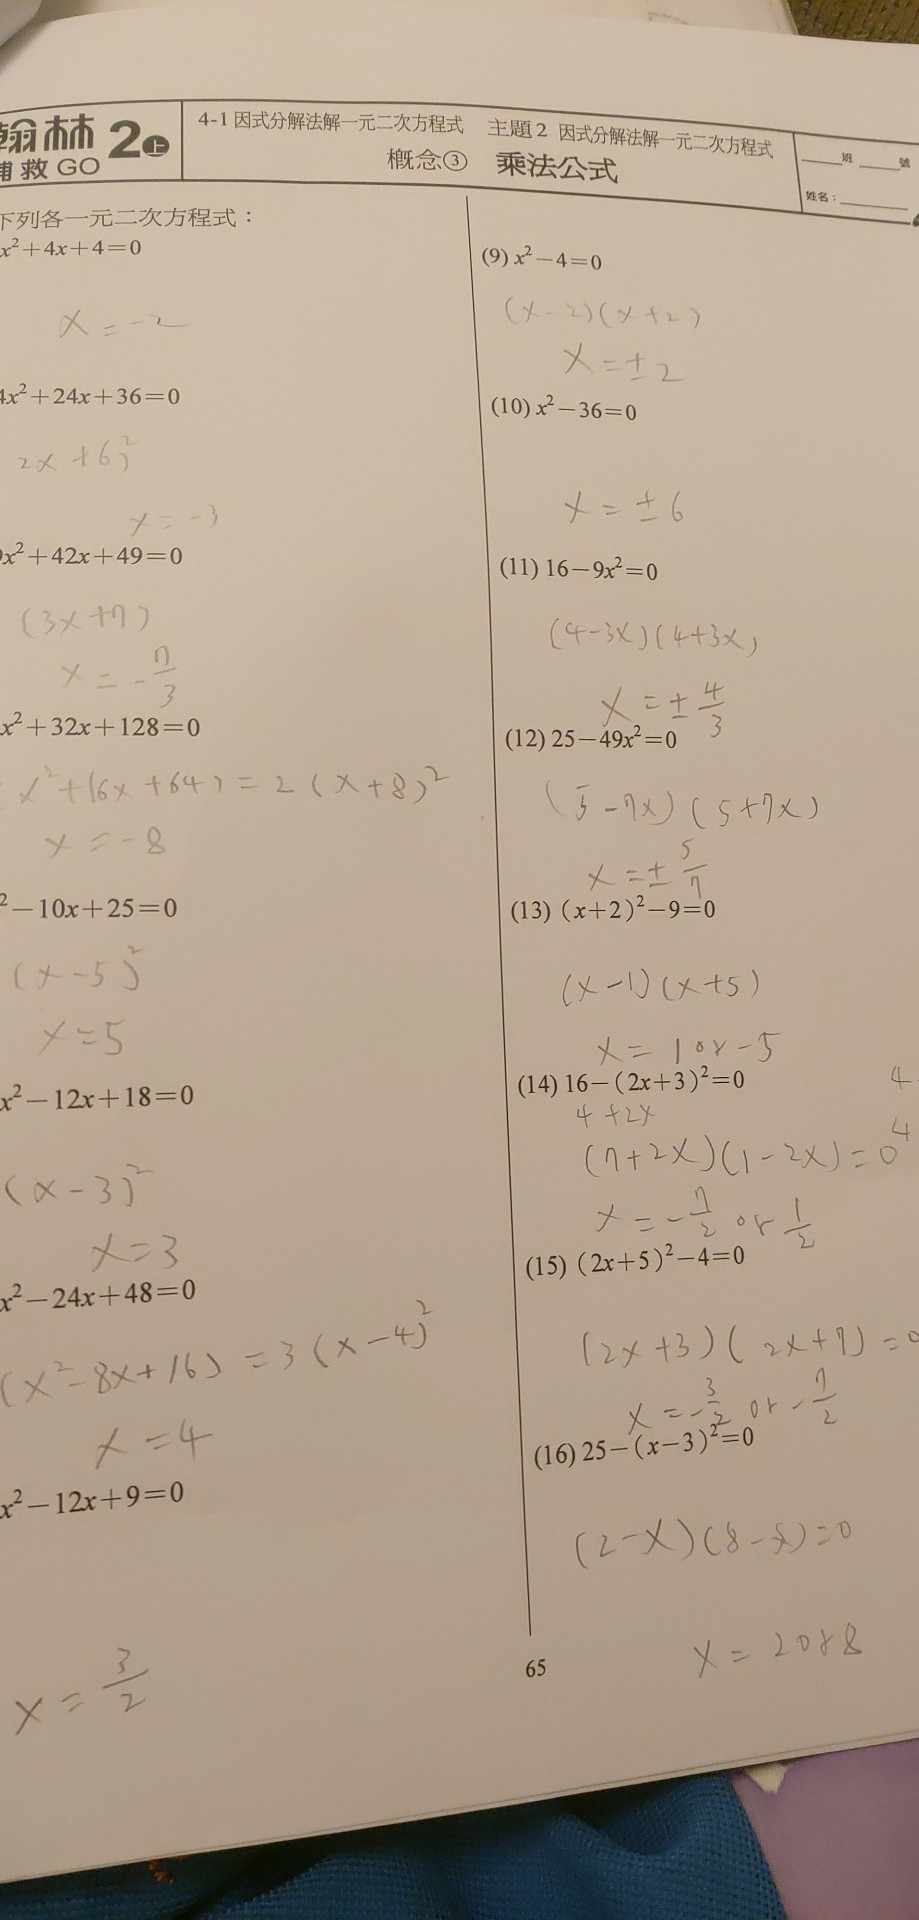 翰林 2上
補救GO
4-1 因式分解法解一元二次方程式 主題2 因式分解法解一元二次方程式
概念③ 乘法公式
班 號
姓名：
下列各一元二次方程式：
x²+4x+4=0
x=-2
4x²+24x+36=0
2x+6)²
x=-3
9x²+42x+49=0
(3x+7)
x=-7/3
x²+32x+128=0
x²+16x+64)=2(x+8)²
x=-8
²-10x+25=0
(x-5)²
x=5
x²-12x+18=0
(x-3)²
x=3
x²-24x+48=0
(x²-8x+16)=3(x-4)²
x=4
x²-12x+9=0
x=3/2
(9) x²-4=0
(x-2)(x+2)
x=±2
(10) x²-36=0
x=±6
(11) 16-9x²=0
(4-3x)(4+3x)
x=±4/3
(12) 25-49x²=0
(5-7x)(5+7x)
x=±5/7
(13) (x+2)²-9=0
(x-1)(x+5)
x=1or-5
(14) 16-(2x+3)²=0
4-
4+2x
4
(7+2x)(1-2x)=0
x=-7/2 or 1/2
(15) (2x+5)²-4=0
(2x+3)(2x+7)=0
x=-3/2 or -7/2
(16) 25-(x-3)²=0
(2-x)(8-x)=0
x=2or8
65